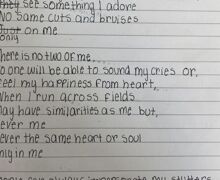 they see something I adore
No same cuts and bruises
Just on me
only
here is no two of me...
o one will be able to sound my cries or,
eel my happiness from heart,
hen I run across fields
ay have similarities as me but,
ever me
ever the same heart or soul
nly in me